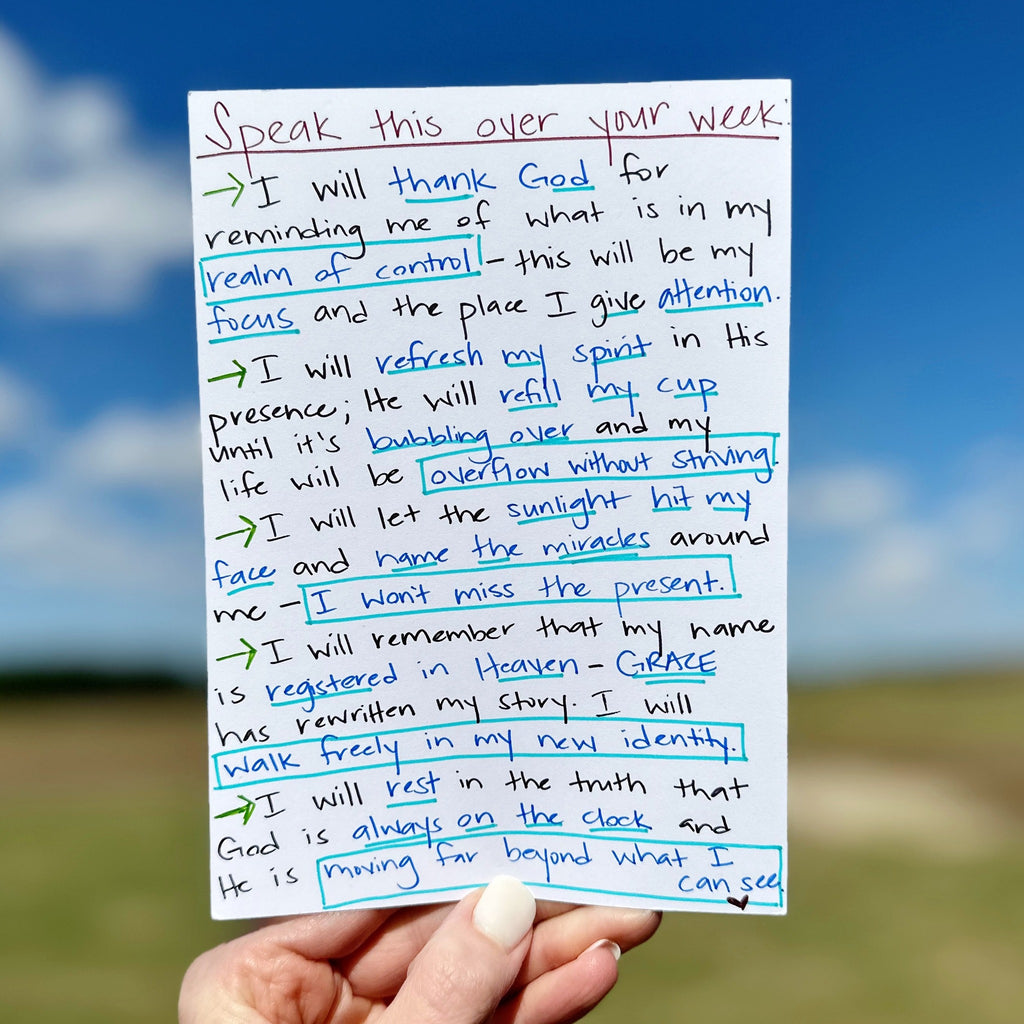 Speak this over your week:
→ I will thank God for
reminding me of what is in my
realm of control - this will be my
focus and the place I give attention.
→ I will refresh my spirit in His
presence; He will refill my cup
until it's bubbling over and my
life will be overflow without striving.
→ I will let the sunlight hit my
face and name the miracles around
me - I won't miss the present.
→ I will remember that my name
is registered in Heaven - GRACE
has rewritten my story. I will
walk freely in my new identity.
→ I will rest in the truth that
God is always on the clock and
He is moving far beyond what I
can see.